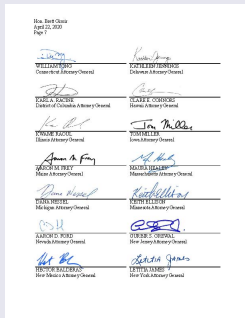 Hon. Brett Giroir
April 22, 2020
Page 7
WILLIAM TONG
Connecticut Attorney General
KATHLEEN JENNINGS
Delaware Attorney General
KARL A. RACINE
District of Columbia Attorney General
CLARE E. CONNORS
Hawaii Attorney General
KWAME RAOUL
Illinois Attorney General
Tom Miller
TOM MILLER
Iowa Attorney General
Aaron M. Frey
AARON M. FREY
Maine Attorney General
MAURA HEALEY
Massachusetts Attorney General
Dana Nessel
DANA NESSEL
Michigan Attorney General
Keith Ellison
KEITH ELLISON
Minnesota Attorney General
AARON D. FORD
Nevada Attorney General
GURBIR S. GREWAL
New Jersey Attorney General
HECTOR BALDERAS
New Mexico Attorney General
Letitia James
LETITIA JAMES
New York Attorney General